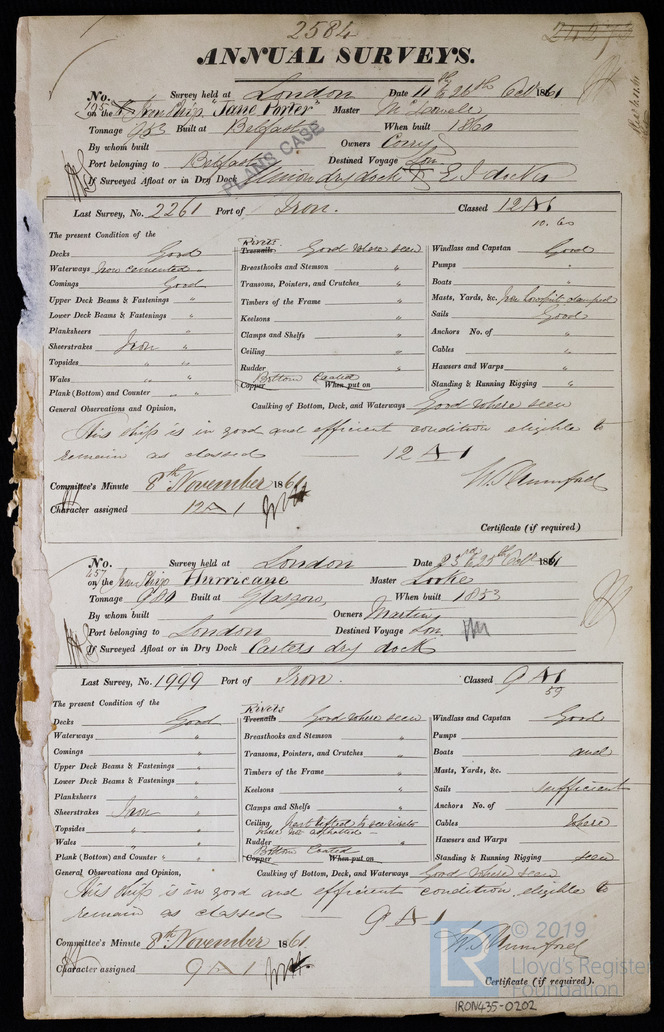 2584
ANNUAL SURVEYS.
No. Survey held at London Date 11th & 26th Octr 1861
195 on the Iron Ship "Jane Porter" Master
Tonnage 953 Built at Belfast When built 1860
By whom built Owners Corry
Port belonging to Belfast Destined Voyage Lon
PLANS CASE
If Surveyed Afloat or in Dry Dock Union dry dock & E I docks
Last Survey, No. 2261 Port of Iron. Classed 12 A 1
10. 60
The present Condition of the
Decks Good
Waterways Iron cemented
Comings Good
Upper Deck Beams & Fastenings "
Lower Deck Beams & Fastenings "
Planksheers "
Sheerstrakes Iron "
Topsides " "
Wales " "
Plank (Bottom) and Counter " "
Rivets
Treenails Good where seen
Breasthooks and Stemson "
Transoms, Pointers, and Crutches "
Timbers of the Frame "
Keelsons "
Clamps and Shelfs "
Ceiling "
Rudder "
Bottom Coated
Copper When put on
Windlass and Capstan Good
Pumps "
Boats "
Masts, Yards, &c.
Sails Good
Anchors No. of "
Cables "
Hawsers and Warps "
Standing & Running Rigging "
General Observations and Opinion, Caulking of Bottom, Deck, and Waterways Good where seen
This ship is in good and efficient condition eligible to
remain as classed 12 A 1
Committee's Minute 8th November 1861
Character assigned 12 A 1
Certificate (if required)
No. Survey held at London Date 23rd & 25th Octr 1861
457 on the Iron Ship Hurricane Master Locke
Tonnage 980 Built at Glasgow When built 1853
By whom built Owners Martin
Port belonging to London Destined Voyage Lon
If Surveyed Afloat or in Dry Dock Casters dry dock
Last Survey, No. 1999 Port of Iron. Classed 9 A 1
59
The present Condition of the
Decks Good
Waterways "
Comings "
Upper Deck Beams & Fastenings "
Lower Deck Beams & Fastenings "
Planksheers "
Sheerstrakes Iron "
Topsides " "
Wales " "
Plank (Bottom) and Counter " "
Rivets
Treenails Good where seen
Breasthooks and Stemson "
Transoms, Pointers, and Crutches "
Timbers of the Frame "
Keelsons "
Clamps and Shelfs "
Ceiling part lifted to see rivets
where not asphalted
Rudder
Bottom Coated
Copper When put on
Windlass and Capstan Good
Pumps
Boats and
Masts, Yards, &c.
Sails sufficient
Anchors No. of
Cables where
Hawsers and Warps
Standing & Running Rigging seen
General Observations and Opinion, Caulking of Bottom, Deck, and Waterways Good where seen
This ship is in good and efficient condition eligible to
remain as classed 9 A 1
Committee's Minute 8th November 1861.
Character assigned 9 A 1
Certificate (if required).
LR © 2019
Lloyd's Register
Foundation
IRON435-0202